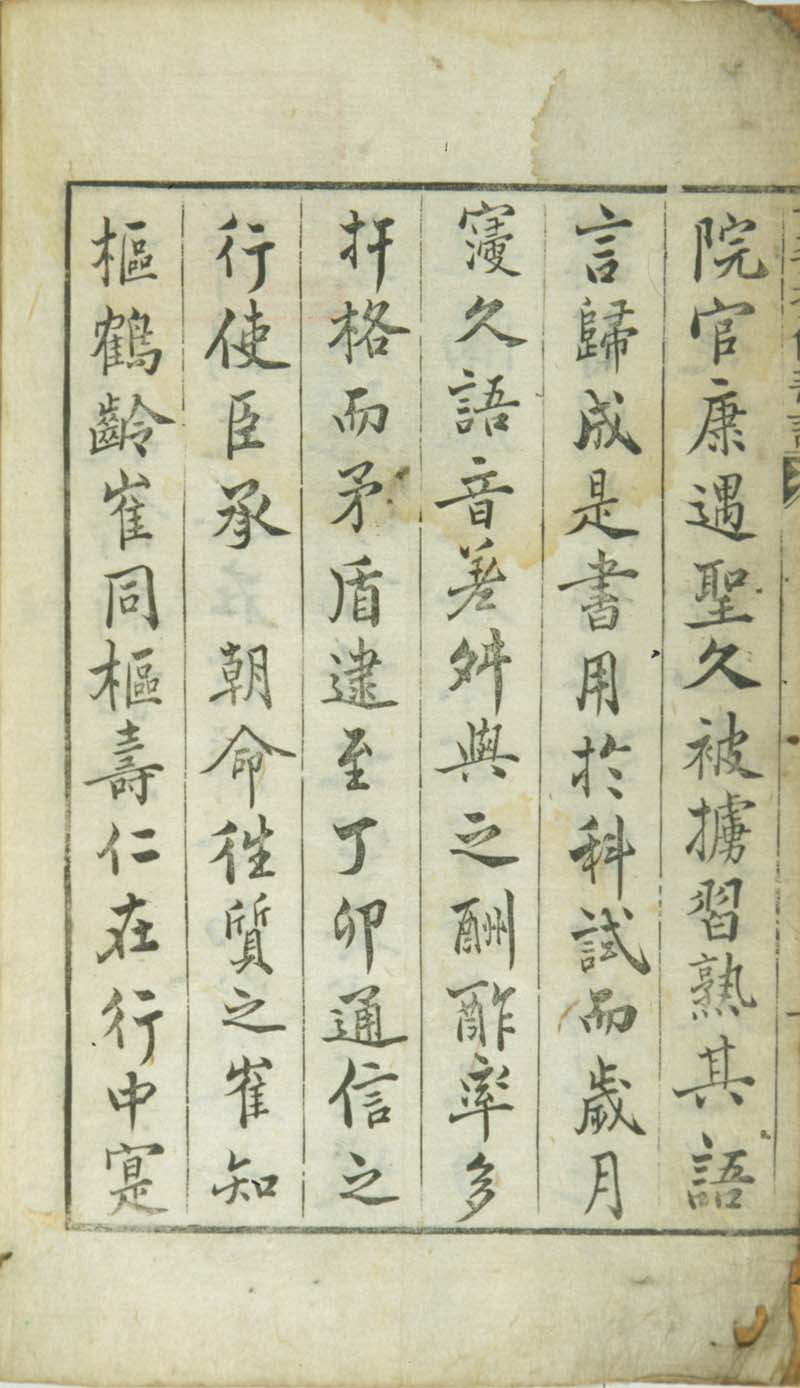 院官康遇聖久被擄習熟其語
言歸成是書用於科試而歲月
寖久語音差舛與之酬酢率多
扞格而矛盾逮至丁卯通信之
行使臣承　朝命徃質之崔知
樞鶴齡崔同樞壽仁在行中寔